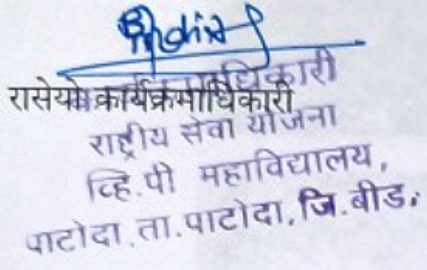 कार्यक्रमाधिकारी
रासेयो कार्यक्रमाधिकारी
राष्ट्रीय सेवा योजना
व्हि.पी महाविद्यालय,
पाटोदा.ता.पाटोदा.जि.बीड.